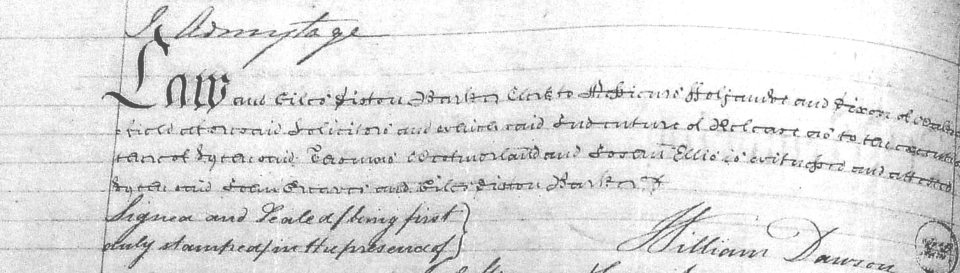 J. Armytage
Law and Giles Piston Barker Clerk to Messieurs Holdsworth and Dixon of Wake
field aforesaid Solicitors and which said Indenture of Release as to the execution
thereof by the said Thomas Westmorland and Ellis is witnessed and attested
by the said and Giles Piston Barker
Signed and Sealed being first
duly stamped in the presence of
William Dawson